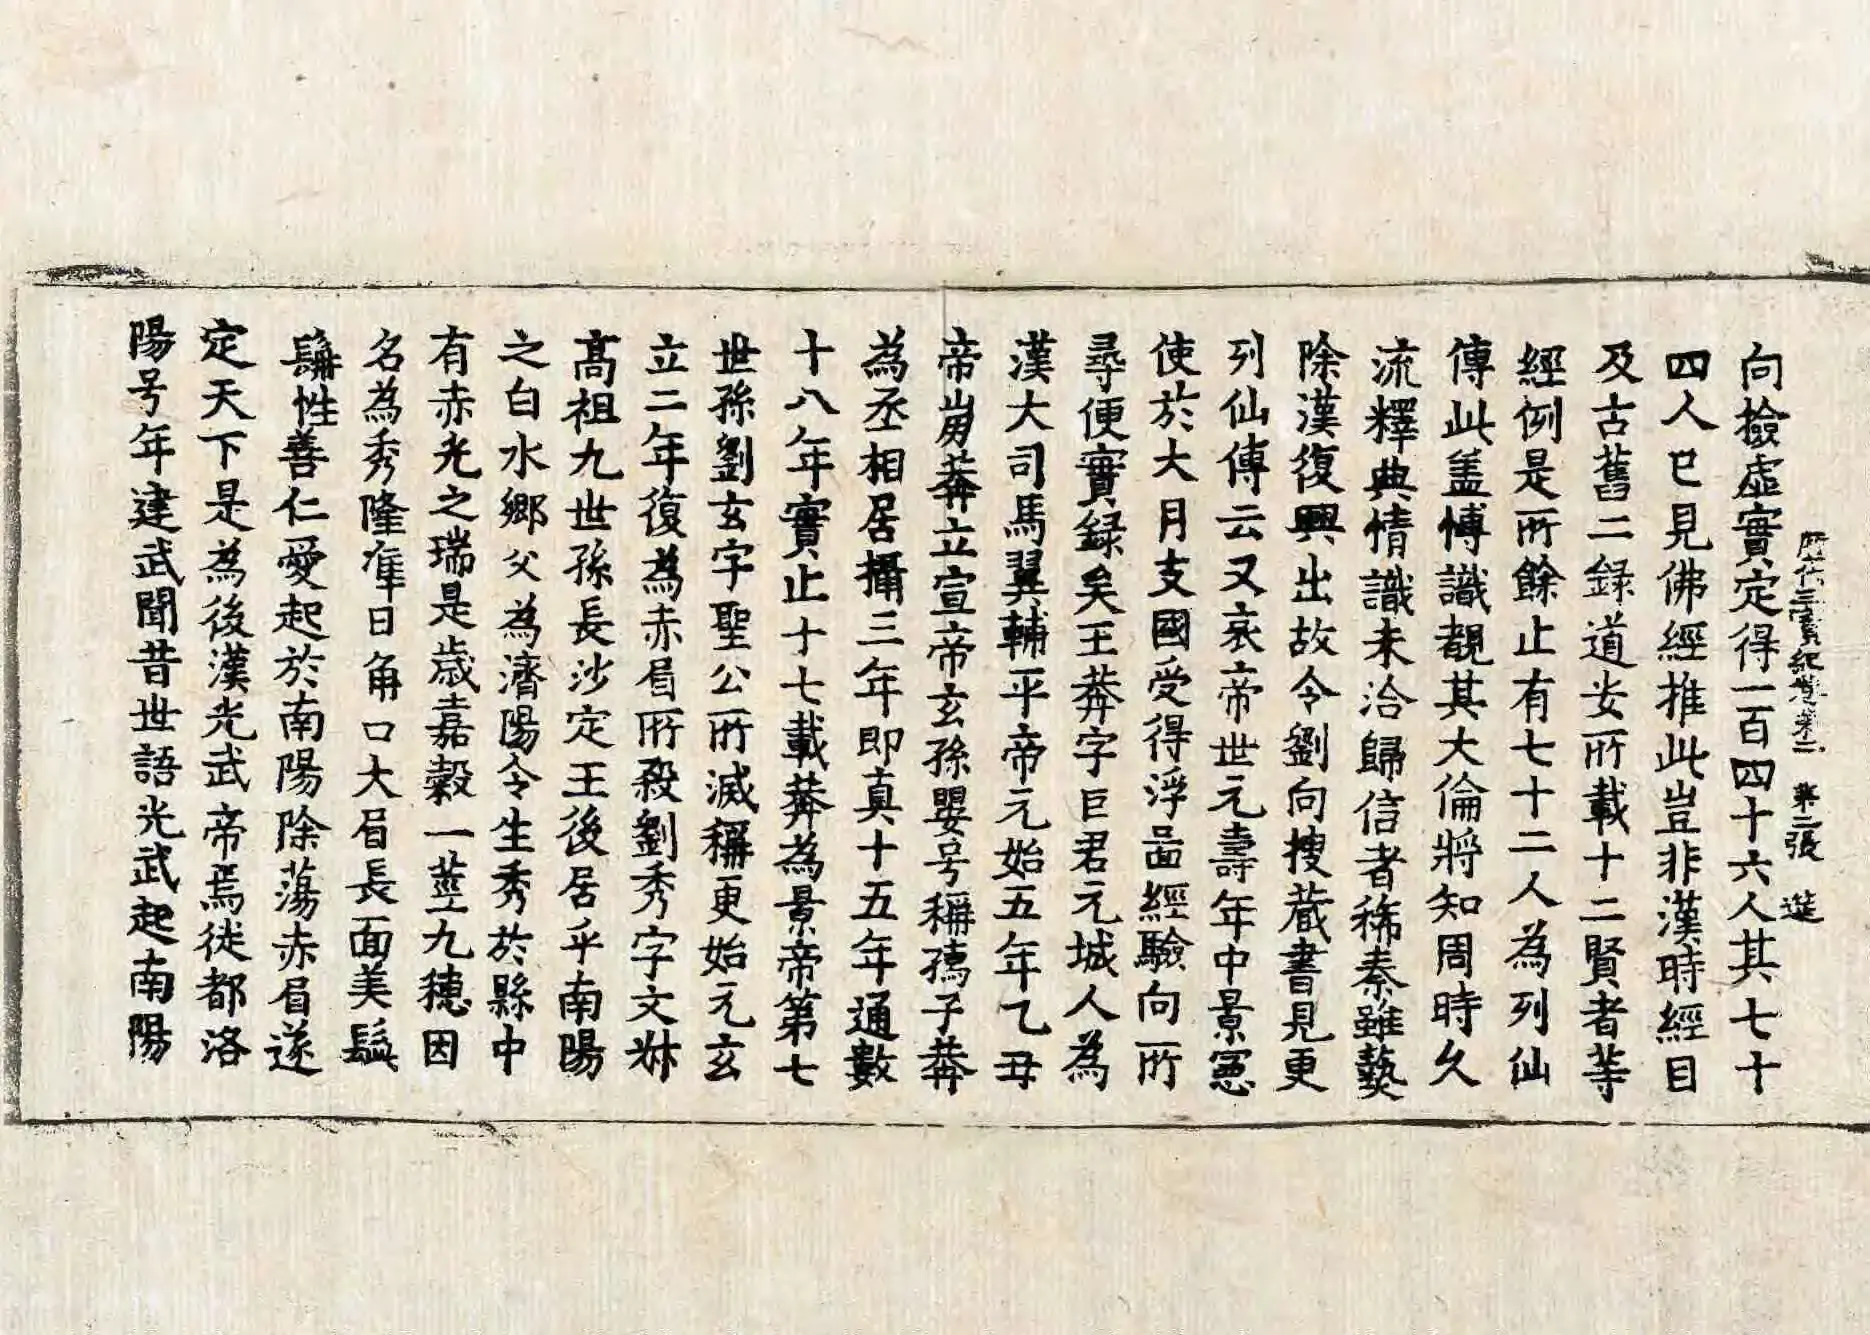 歷代三寶紀卷第二 第二張 進
向撿虛實定得一百四十六人其七十
四人已見佛經推此豈非漢時經目
及古舊二録道安所載十二賢者等
經例是所餘止有七十二人為列仙
傳此盖博識覩其大倫將知周時久
流釋典情識未洽歸信者稀秦雖爇
除漢復興出故令劉向搜蔵書見更
列仙傳云又哀帝世元壽年中景憲
使於大月支國受得浮圖經驗向所
尋便實録矣王莽字巨君元城人為
漢大司馬翼輔平帝元始五年乙丑
帝崩莽立宣帝玄孫嬰号稱孺子莽
為丞相居攝三年即真十五年通數
十八年實止十七載莽為景帝第七
世孫劉玄字聖公所滅稱更始元玄
立二年復為赤眉所殺劉秀字文叔
髙祖九世孫長沙定王後居乎南陽
之白水郷父為濟陽令生秀於縣中
有赤光之瑞是歳嘉縠一莖九穗因
名為秀隆準日角口大眉長面美髭
鬚性善仁愛起於南陽除蕩赤眉遂
定天下是為後漢光武帝焉徙都洛
陽号年建武聞昔世語光武起南陽